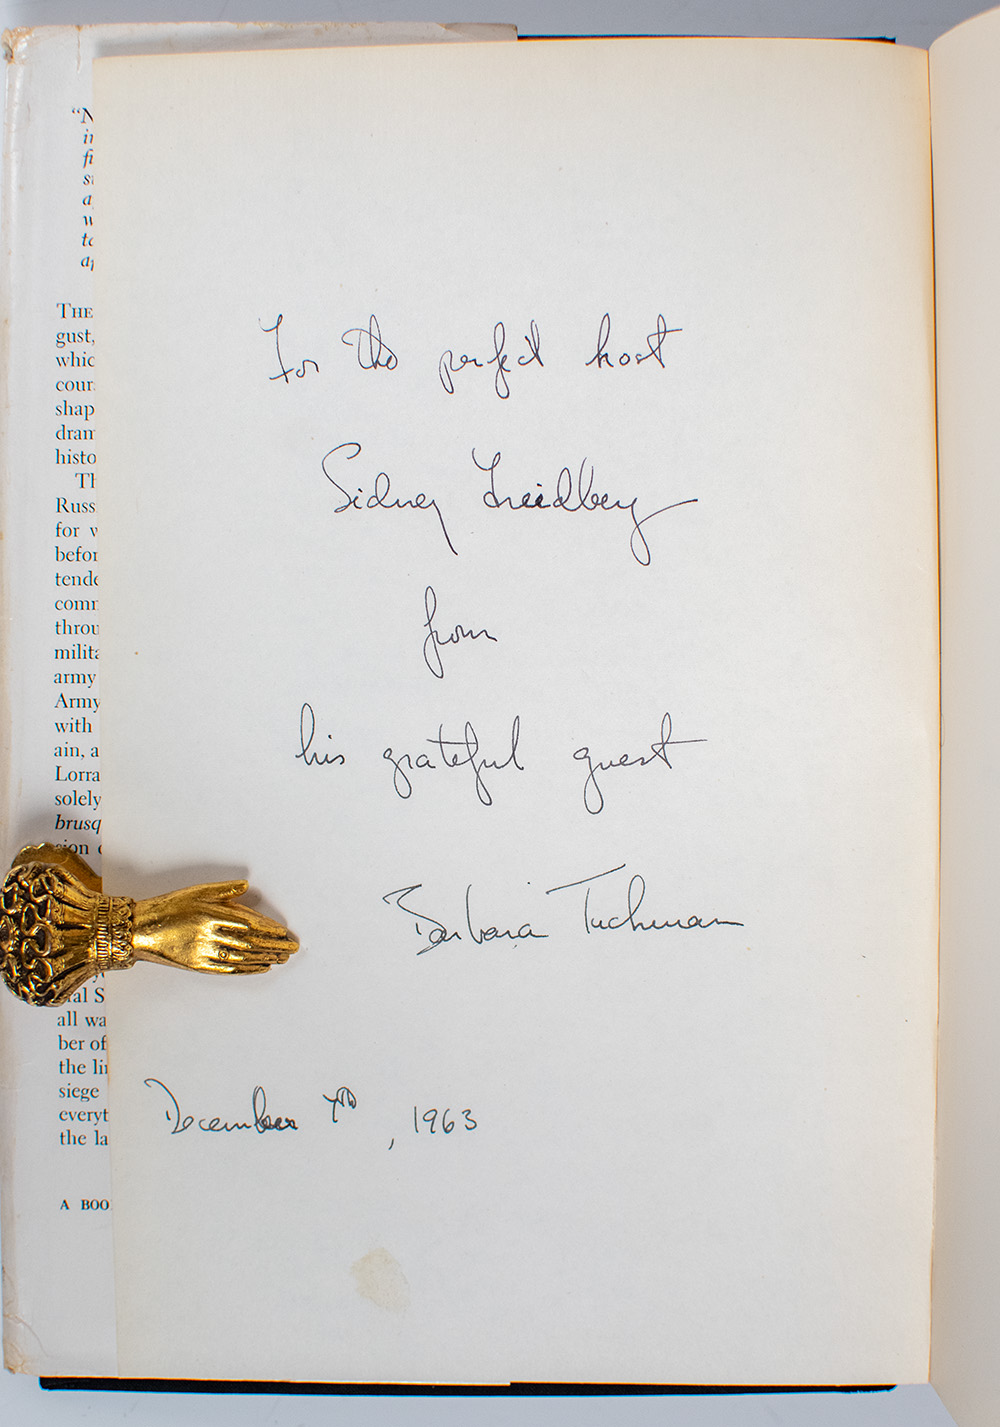 "N
in
fi
s
a
w
to
ap
THE
gust,
which
cour
shap
dram
histo
Th
Russ
for v
befor
tende
comm
throu
milita
army
Army
with
ain, a
Lorra
solely
brusq
sion
ial S
all wa
ber of
the lin
siege
everyt
the la
A BOO
For the perfect host
Sidney Freidberg
from
his grateful guest
Barbara Tuchman
December 7th, 1963